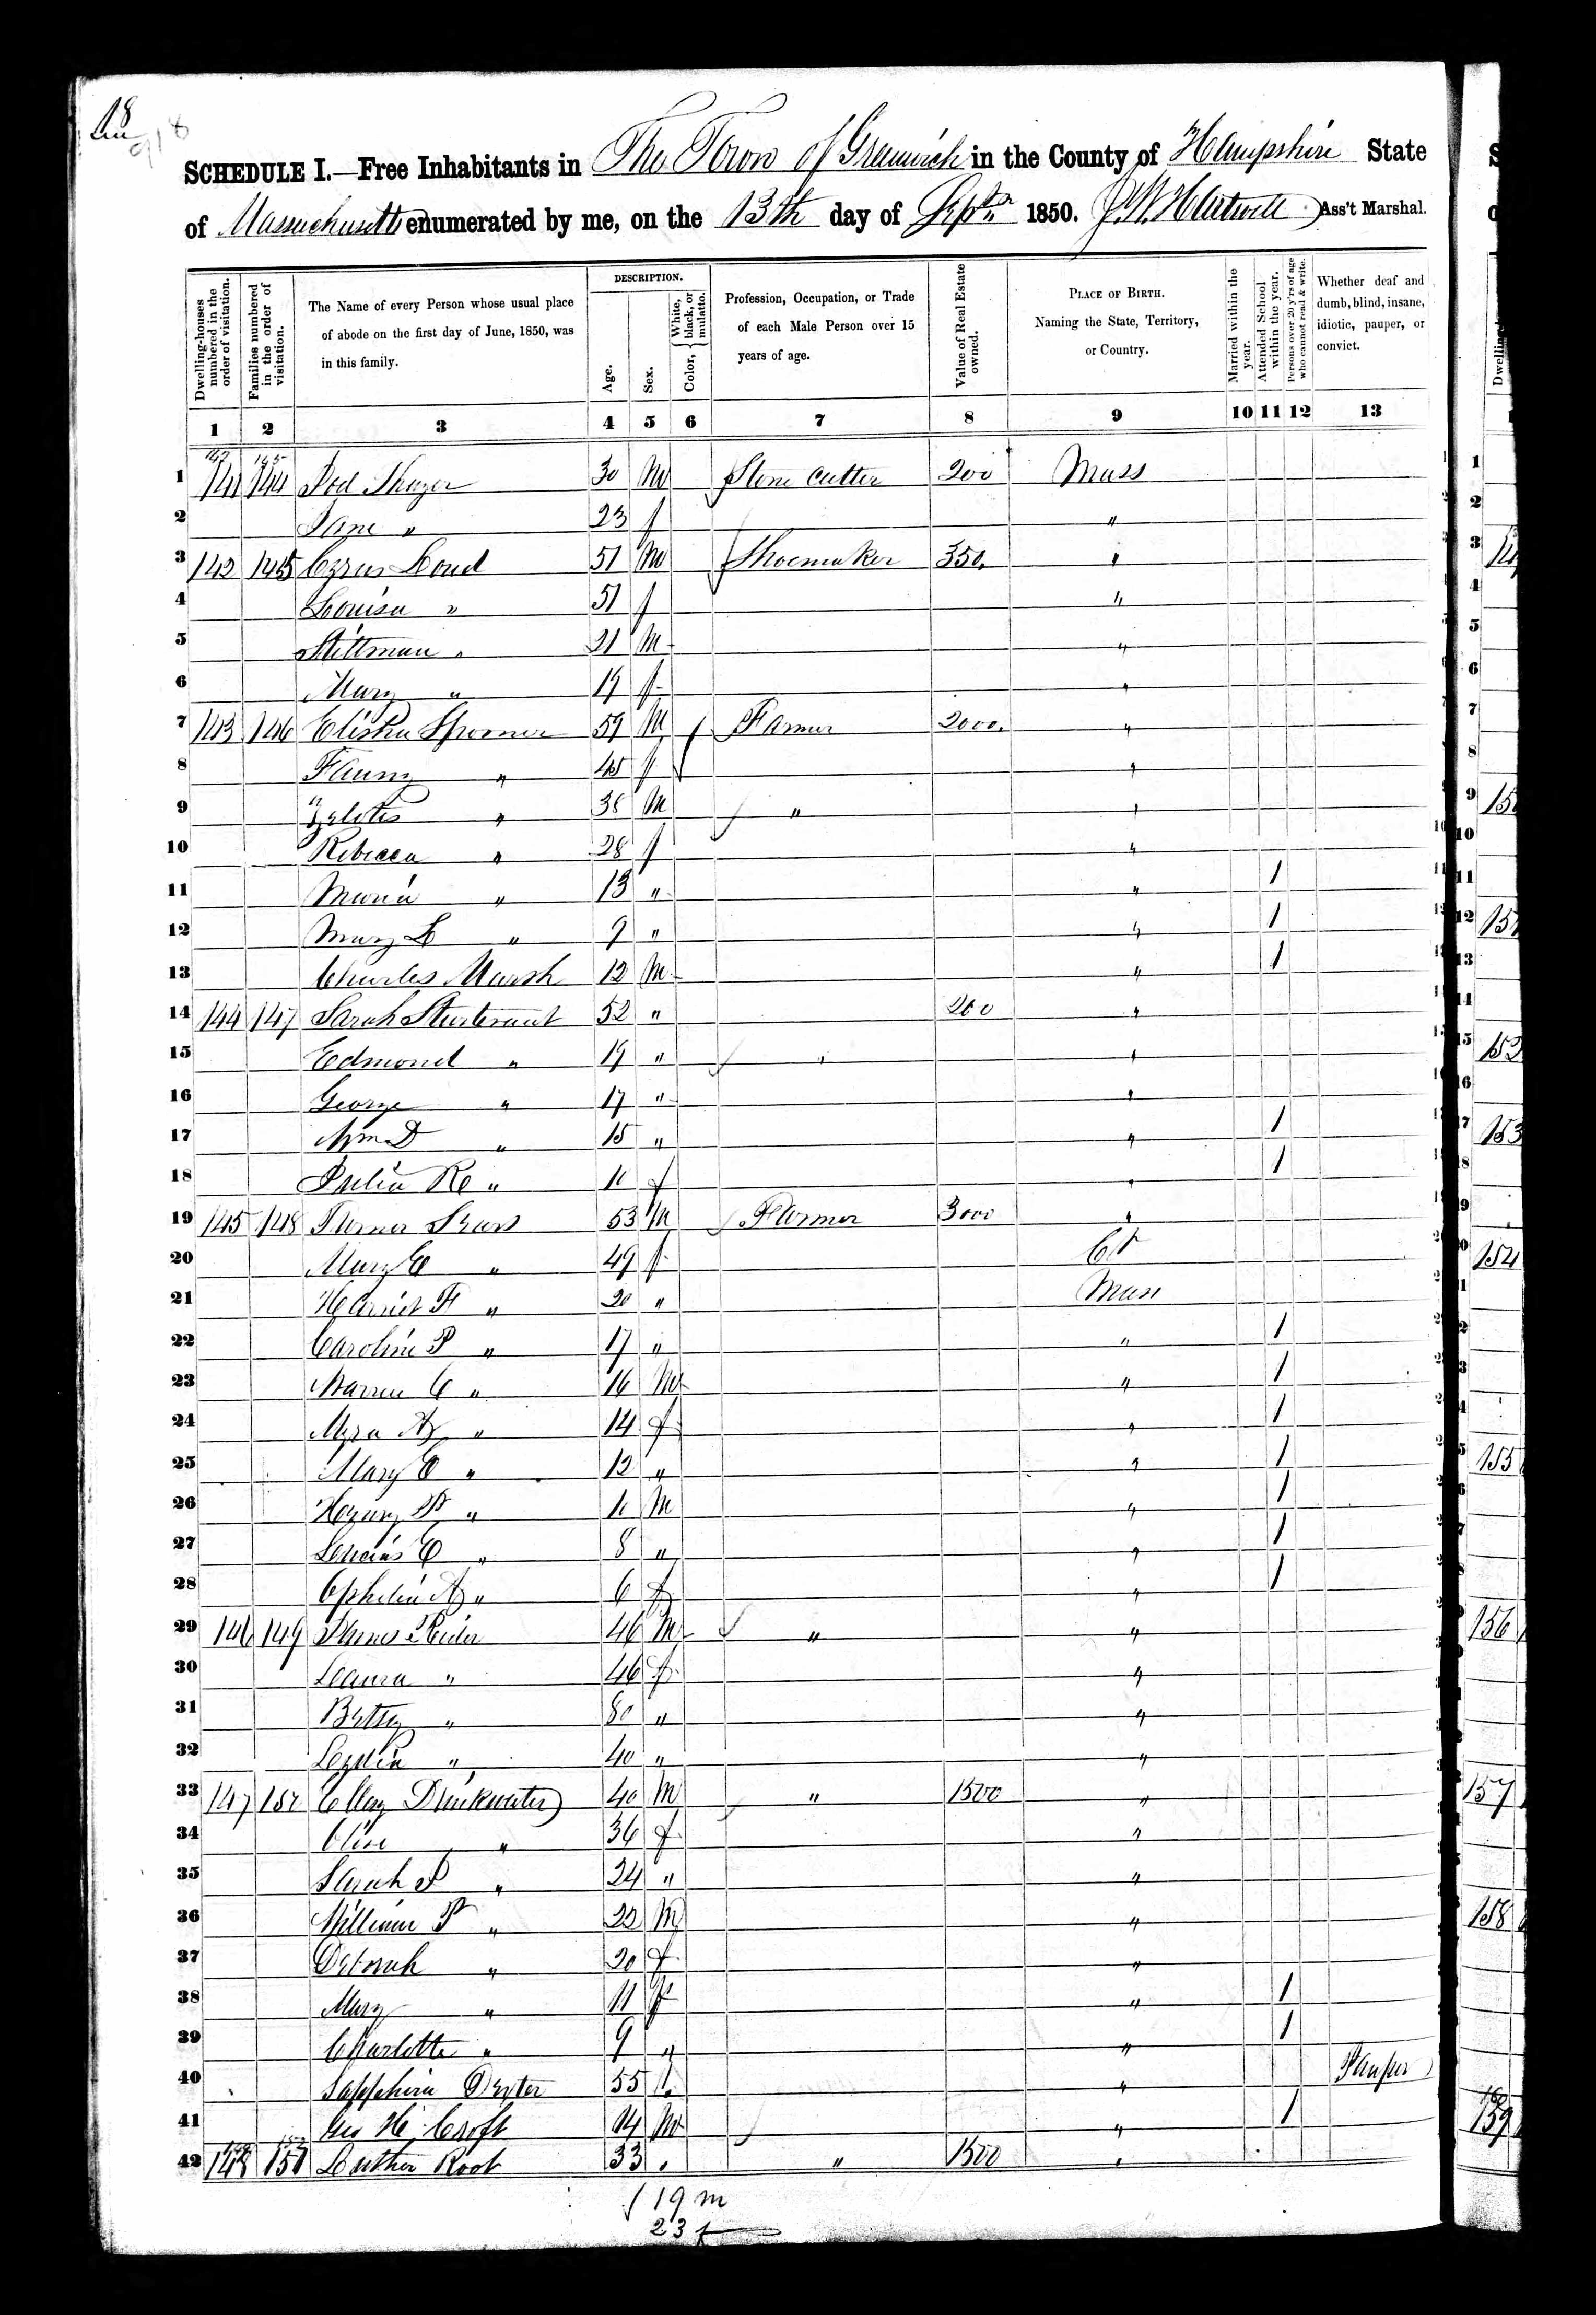 18
918
SCHEDULE I.—Free Inhabitants in The Town of Greenwich in the County of Hampshire State
of Massachusetts enumerated by me, on the 13th day of Septr 1850. Ass't Marshal.
Dwelling-houses numbered in the order of visitation.
Families numbered in the order of visitation.
The Name of every Person whose usual place of abode on the first day of June, 1850, was in this family.
DESCRIPTION.
Age.
Sex.
Color, { White, black, or mulatto.
Profession, Occupation, or Trade of each Male Person over 15 years of age.
Value of Real Estate owned.
PLACE OF BIRTH. Naming the State, Territory, or Country.
Married within the year.
Attended School within the year.
Persons over 20 y'rs of age who cannot read & write.
Whether deaf and dumb, blind, insane, idiotic, pauper, or convict.
1 2 3 4 5 6 7 8 9 10 11 12 13
1 141 144 30 M Stone Cutter 200 Mass
2 Jane " 23 f "
3 142 145 Cyrus Loud 51 M Shoemaker 350. "
4 Louisa " 51 f "
5 Stillman " 21 M "
6 Mary " 19 f "
7 143 146 Elisha Spooner 59 M Farmer 2000. "
8 Fanny " 45 f "
9 Zelotes " 38 M " "
10 Rebecca " 28 f "
11 Maria " 13 " " 1
12 Mary L " 9 " " 1
13 Charles Marsh 12 M " 1
14 144 147 Sarah Sturtevant 52 " 200 "
15 Edmond " 19 " " "
16 George " 17 " "
17 Wm D " 15 " " 1
18 Julia R " 11 f " 1
19 145 148 Turner Sears 53 M Farmer 3000 "
20 Mary C " 49 f Ct
21 Harriet F " 20 " Mass
22 Caroline P " 17 " " 1
23 Warren C " 16 M " 1
24 Myra A " 14 f " 1
25 Mary C " 12 " " 1
26 Henry P " 11 M " 1
27 Lucius C " 8 " " 1
28 Ophelia A " 6 f " 1
29 146 149 46 M " "
30 Laura " 46 f "
31 Betsy " 80 " "
32 Lydia " 40 " "
33 147 150 Drinkwater 40 M " 1500 "
34 Olive " 36 f "
35 Sarah P " 24 " "
36 William P " 22 M "
37 Deborah " 20 f "
38 Mary " 11 f " 1
39 Charlotte " 9 " " 1
40 Sapphira Dexter 55 f " Pauper
41 Geo H. Croft 14 M " 1
42 148 151 Luther Root 33 " " 1500 "
19 m
23 f